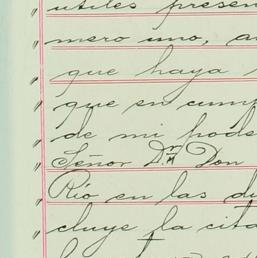 utiles presen
mero uno, a
que haya
que en cump
de mi pode
Señor Dr. Don
Río en las di
cluye la cita